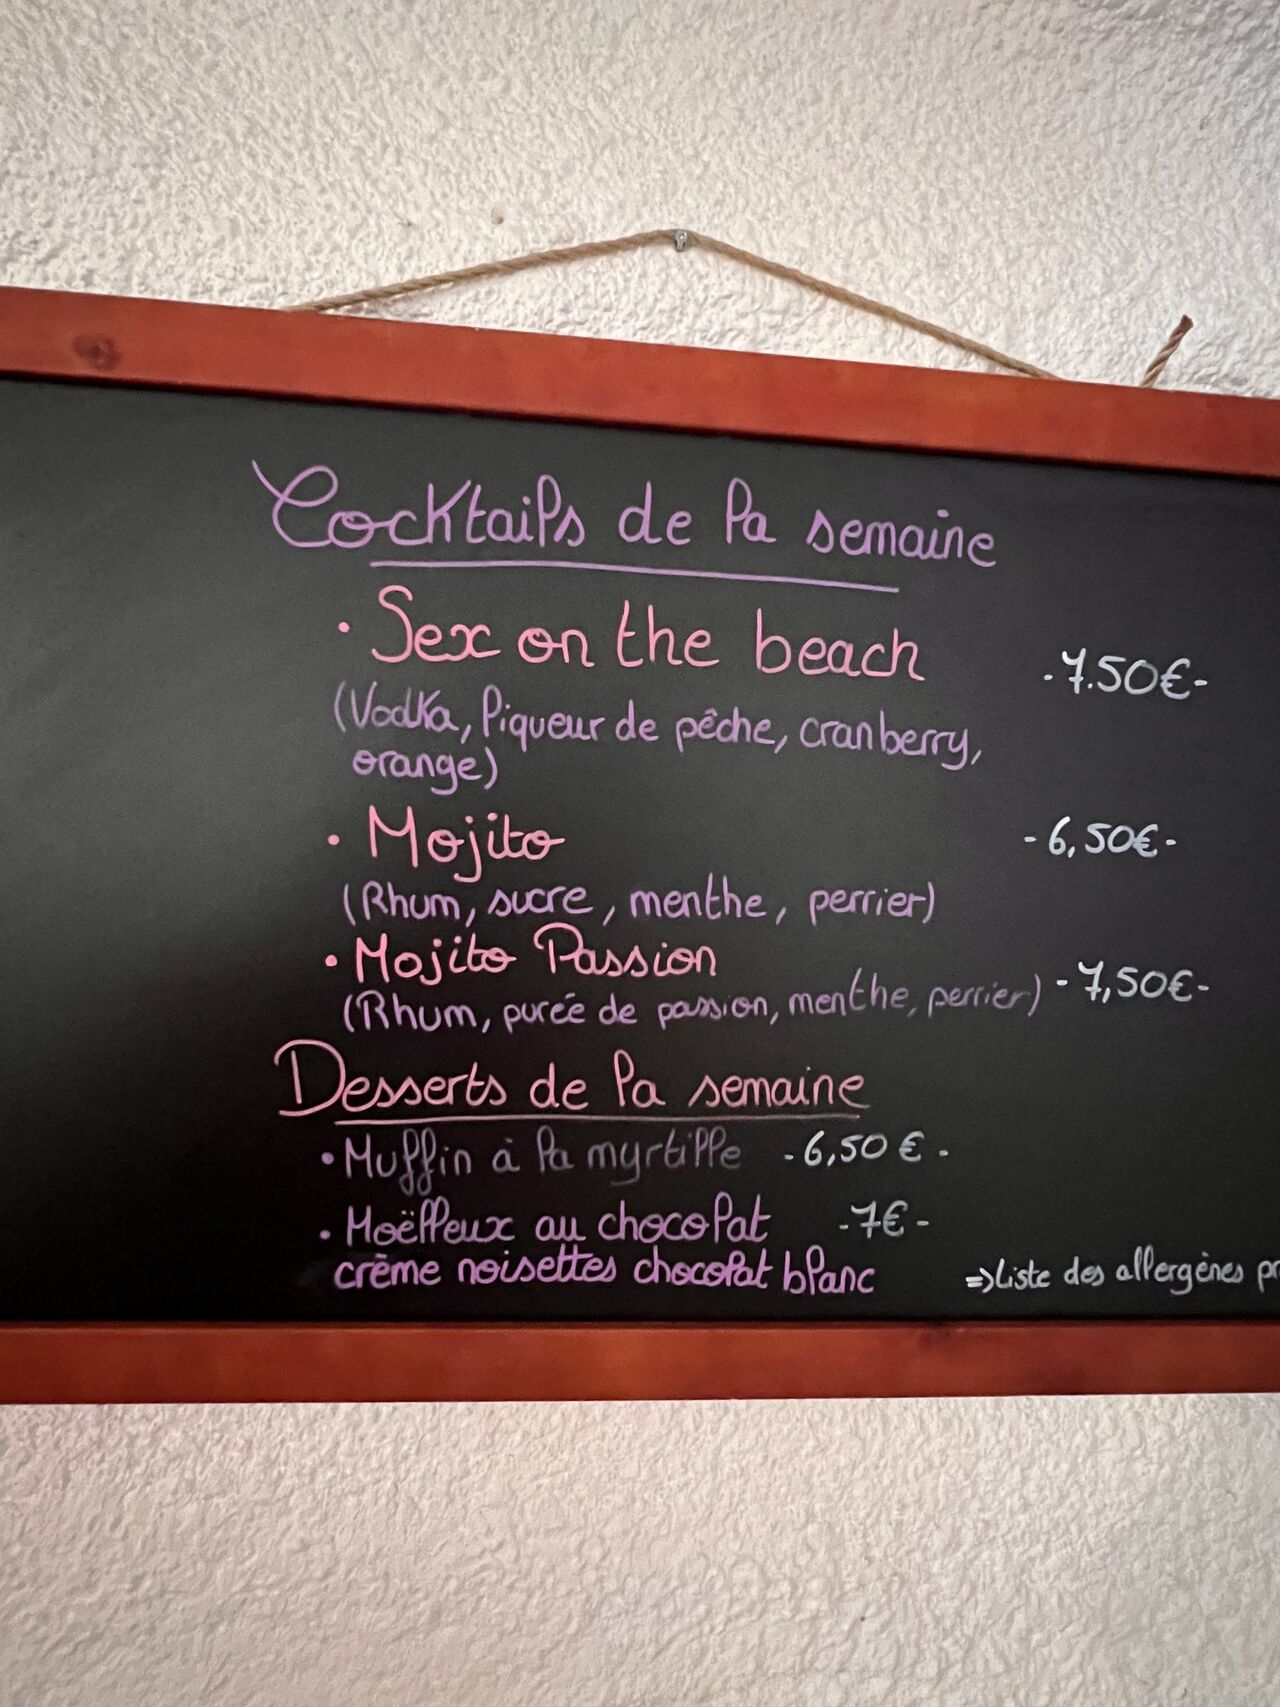 Cocktails de la semaine
• Sex on the beach -7.50€-
(Vodka, liqueur de pêche, cranberry,
orange)
• Mojito -6,50€-
(Rhum, sucre, menthe, perrier)
• Mojito Passion
(Rhum, purée de passion, menthe, perrier) -7,50€-
Desserts de la semaine
• Muffin à la myrtille -6,50€-
• Moëlleux au chocolat -7€-
crème noisettes chocolat blanc
=> Liste des allergènes